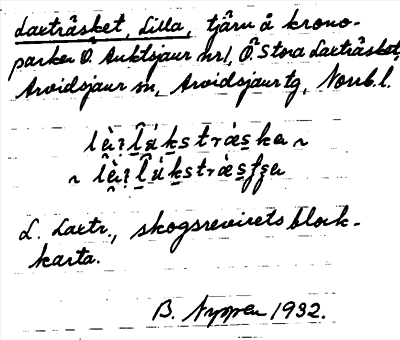 Laxträsket, Lilla, tjärn å krono-
parken Ö. Auktsjaur nr1, Ö. Stora Laxträsket,
Arvidsjaur sn, Arvidsjaur tg, Norrb. l.
L. Laxtr., skogsrevirets block-
karta.
B. Nyppen 1932.